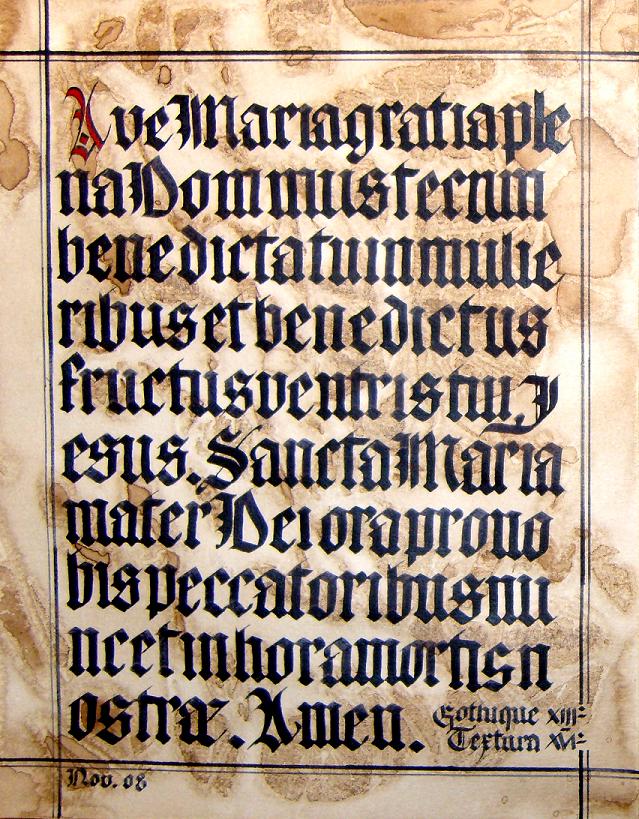 Ave Maria gratia ple
na Dominus tecum
benedicta tu in mulie
ribus et benedictus
fructus ventris tui, J
esus. Sancta Maria
mater Dei ora pro no
bis peccatoribus nu
nc et in hora mortis n
ostræ. Amen.
Gothique XIII
Textura XVI
Nov. 08